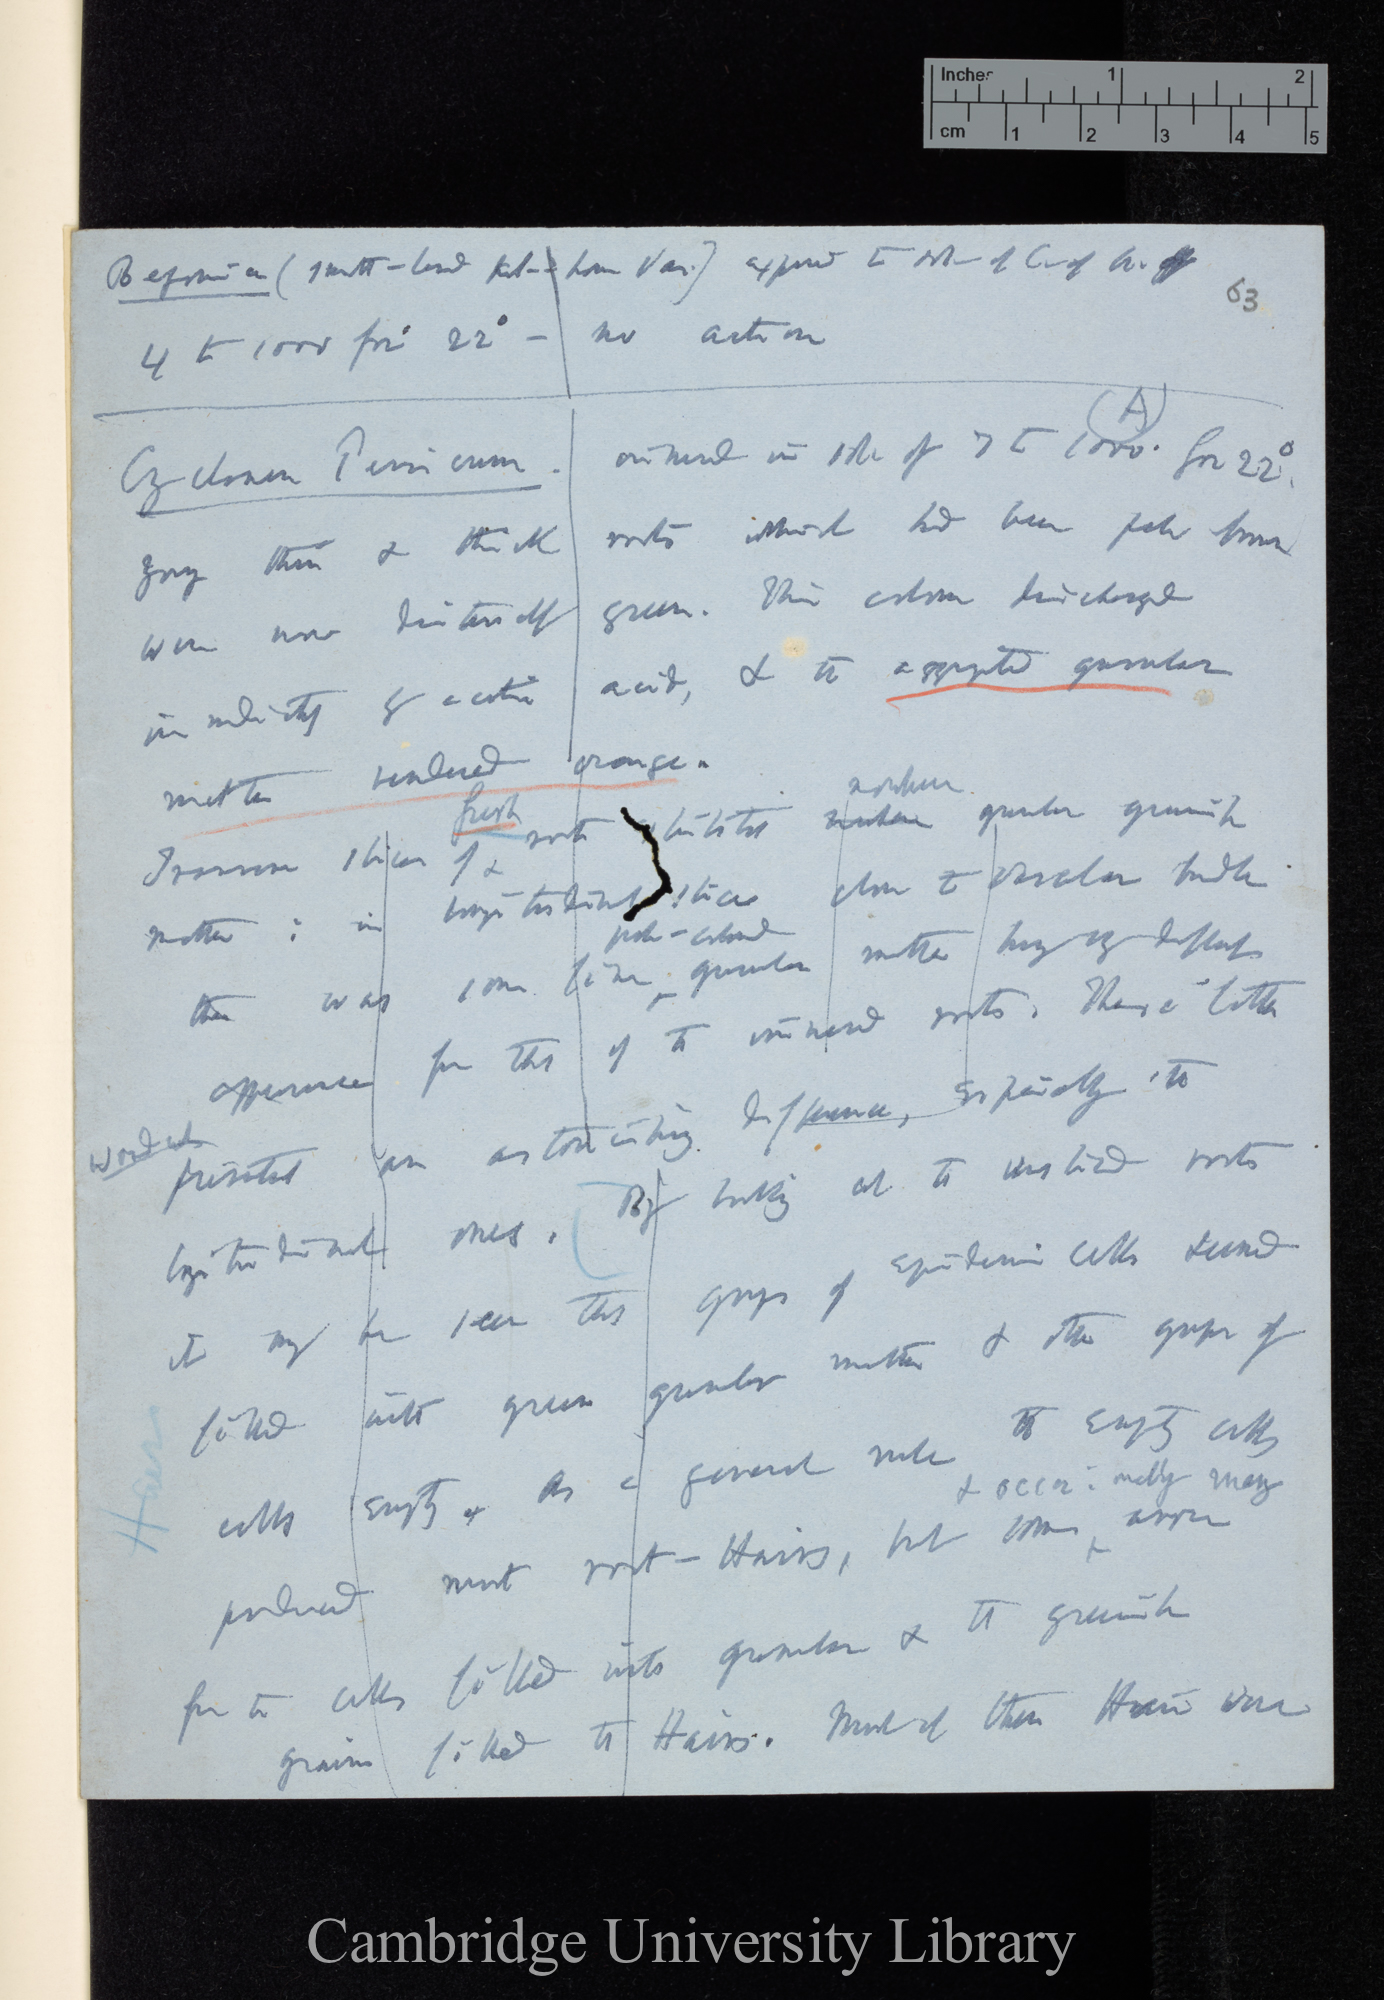 Inches 1 2
cm 1 2 3 4 5
63
Begonia (small-leaved Hot-house Var.) exposed to soln of C. of Am.
4 to 1000 for 22° — no action
(A)
Cyclamen Persicum. immersed in soln of 7 to 1000. for 22°.
Young thin & thick roots which had been pale brown
were now distinctly green. This colour discharged
immediately by acetic acid, & the aggregated granular
matter rendered orange.
fresh
nowhere
Transverse slices of & roots exhibited nowhere granular greenish
matter: in longitudinal slices close to vascular bundle
pale-coloured
there was some fine granular matter having very different
appearance from that of the immersed roots. These latter
Wood cuts
presented an astonishing difference, especially the
longitudinal ones. By looking at the unsliced roots
it may be seen that groups of epidermic cells seemed
filled with green granular matter & other groups of
Hairs
cells empty. As a general rule the empty cells
& occasionally many
produced most root-Hairs, but some arose
from the cells filled with granular & the greenish
grains filled the Hairs. Most of these Hairs were
Cambridge University Library